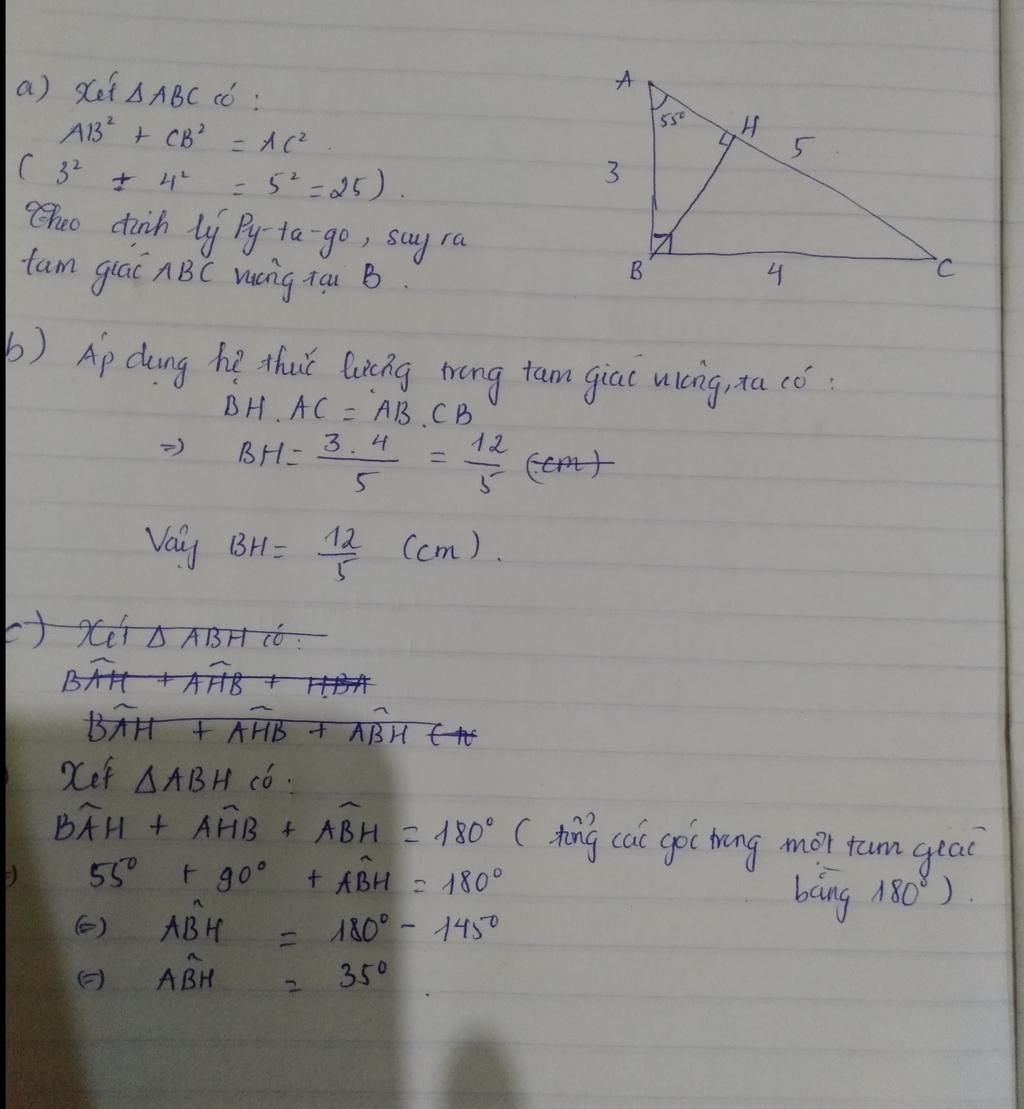 a) Xét ΔABC có :
AB² + CB² = AC²
( 3² + 4² = 5² = 25 ) .
Theo định lý Py-ta-go, suy ra
tam giác ABC vuông tại B .
A
55°
H
5
3
B
4
C
b) Áp dụng hệ thức lượng trong tam giác vuông, ta có :
BH . AC = AB . CB
=> BH = 3 . 4 / 5 = 12 / 5 (cm)
Vậy BH = 12 / 5 (cm) .
c) Xét Δ ABH có :
BÂH + AĤB + HBA
BÂH + AĤB + AB̂H (
Xét ΔABH có :
BÂH + AĤB + AB̂H = 180° ( tổng các góc trong một tam giác
bằng 180° ) .
55° + 90° + AB̂H = 180°
(=) AB̂H = 180° - 145°
(=) AB̂H = 35° .